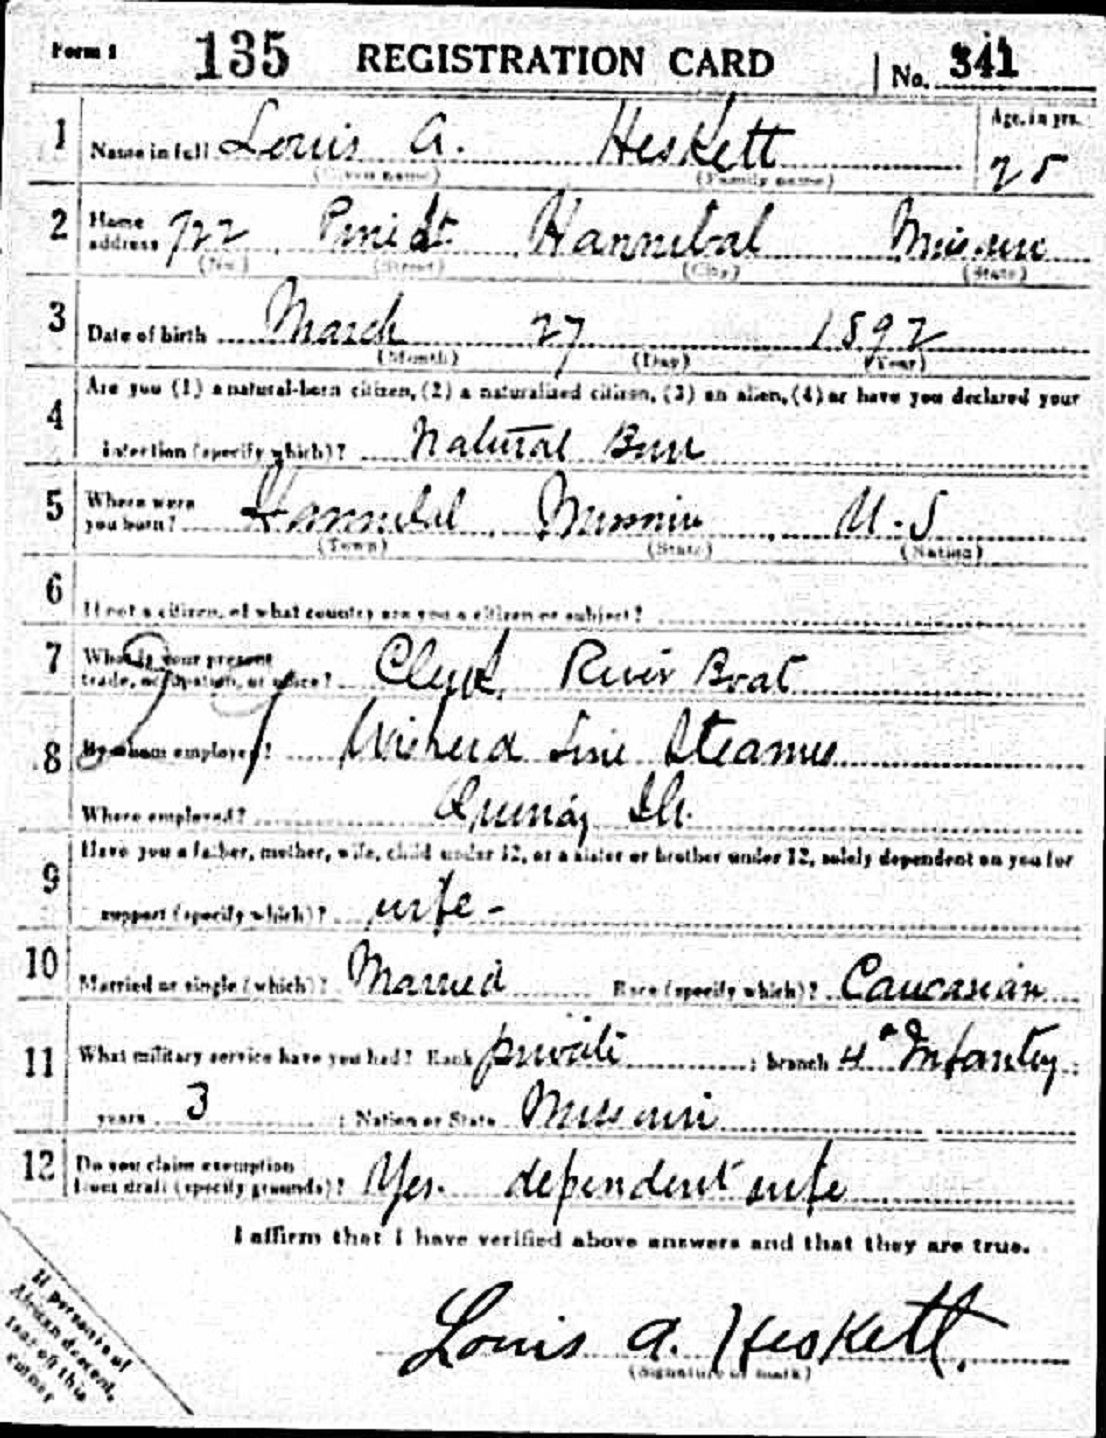 Form 1 135 REGISTRATION CARD No. 341
1 Name in full Louis A. Heskett Age, in yrs. 25
(Given name) (Family name)
2 Home address 722 Hannibal Missouri
(No.) (Street) (City) (State)
3 Date of birth March 27 1892
(Month) (Day) (Year)
4 Are you (1) a natural-born citizen, (2) a naturalized citizen, (3) an alien, (4) or have you declared your
intention (specify which)? Natural Born
5 Where were you born? Hannibal Missouri U.S
(Town) (State) (Nation)
6 If not a citizen, of what country are you a citizen or subject?
7 What is your present trade, occupation, or office? Clerk, River Boat
8 By whom employed? Line Steamer
Where employed? Quincy Ill.
9 Have you a father, mother, wife, child under 12, or a sister or brother under 12, solely dependent on you for
support (specify which)? wife -
10 Married or single (which)? Married Race (specify which)? Caucasian
11 What military service have you had? Rank private ; branch 4" Infantry ;
years 3 ; Nation or State Missouri
12 Do you claim exemption from draft (specify grounds)? Yes. dependent wife
I affirm that I have verified above answers and that they are true.
Louis A. Heskett.
(Signature or mark)
If person is of
African descent,
tear off this
corner